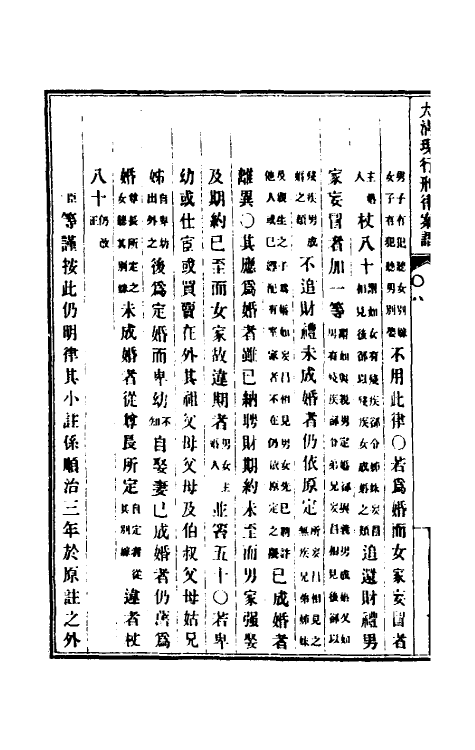 大清現行刑律案語
男子有犯聽女別嫁女子有犯聽男別娶不用此律○若爲婚而女家妄冒者
主婚人杖八十謂如女有殘疾卻令姊妹妄冒相見後卻以殘疾女成婚之類追還財禮男
家妄冒者加一等謂如與親男定婚卻與義男成婚又如男有殘疾卻令弟兄妄冒相見後卻以
殘疾男成婚之類不追財禮未成婚者仍依原定所妄冒相見之無疾兄弟姊妹
及親生之子爲婚如妄冒相見男女先已聘許他人或已經配有室家者不在仍依原定之限已成婚者
離異○其應爲婚者雖已納聘財期約未至而男家强娶
及期約已至而女家故違期者男女主婚人並笞五十○若卑
幼或仕宦或買賣在外其祖父母父母及伯叔父母姑兄
姊自卑幼出外之後爲定婚而卑幼不知自娶妻已成婚者仍舊爲
婚尊長所定之女聽其別嫁未成婚者從尊長所定自定者從其別嫁違者杖
八十仍改正
臣等謹按此仍明律其小註係順治三年於原註之外